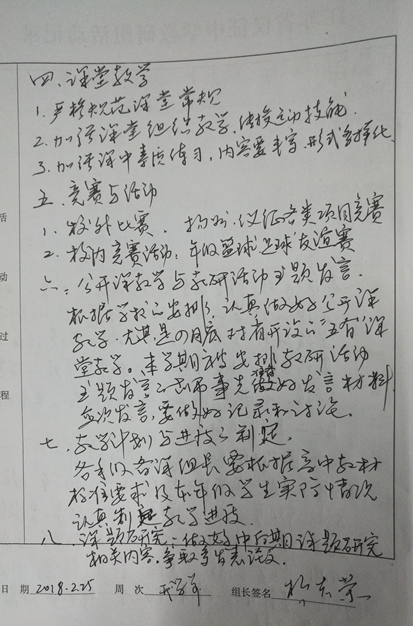 四、课堂教学
1. 严格规范课堂常规
2. 加强课堂组织教学，传授运动技能
3. 加强课中素质练习，内容要丰富，形式多样化
五、竞赛与活动
1. 校外比赛、扬州、仪征各类项目竞赛
2. 校内竞赛活动：年级篮球、足球友谊赛
六、公开课教学与教研活动主题发言.
根据学校的安排，认真做好公开课
教学，尤其是4月底 开设的“五有”课
堂教学。本学期 安排教研活动
主题发言 事先 好发言材料
每次发言，要做好记录和讨论。
七、教学计划与进度的制定.
各年级备课组长要根据高中教材
标准要求及本年级学生实际情况
认真制定教学进度.
八、课题研究：做好 期课题研究
相关内容，争取 发表论文.
活
动
过
程
日 期 2018.2.25 周 次 开学年 组长签名